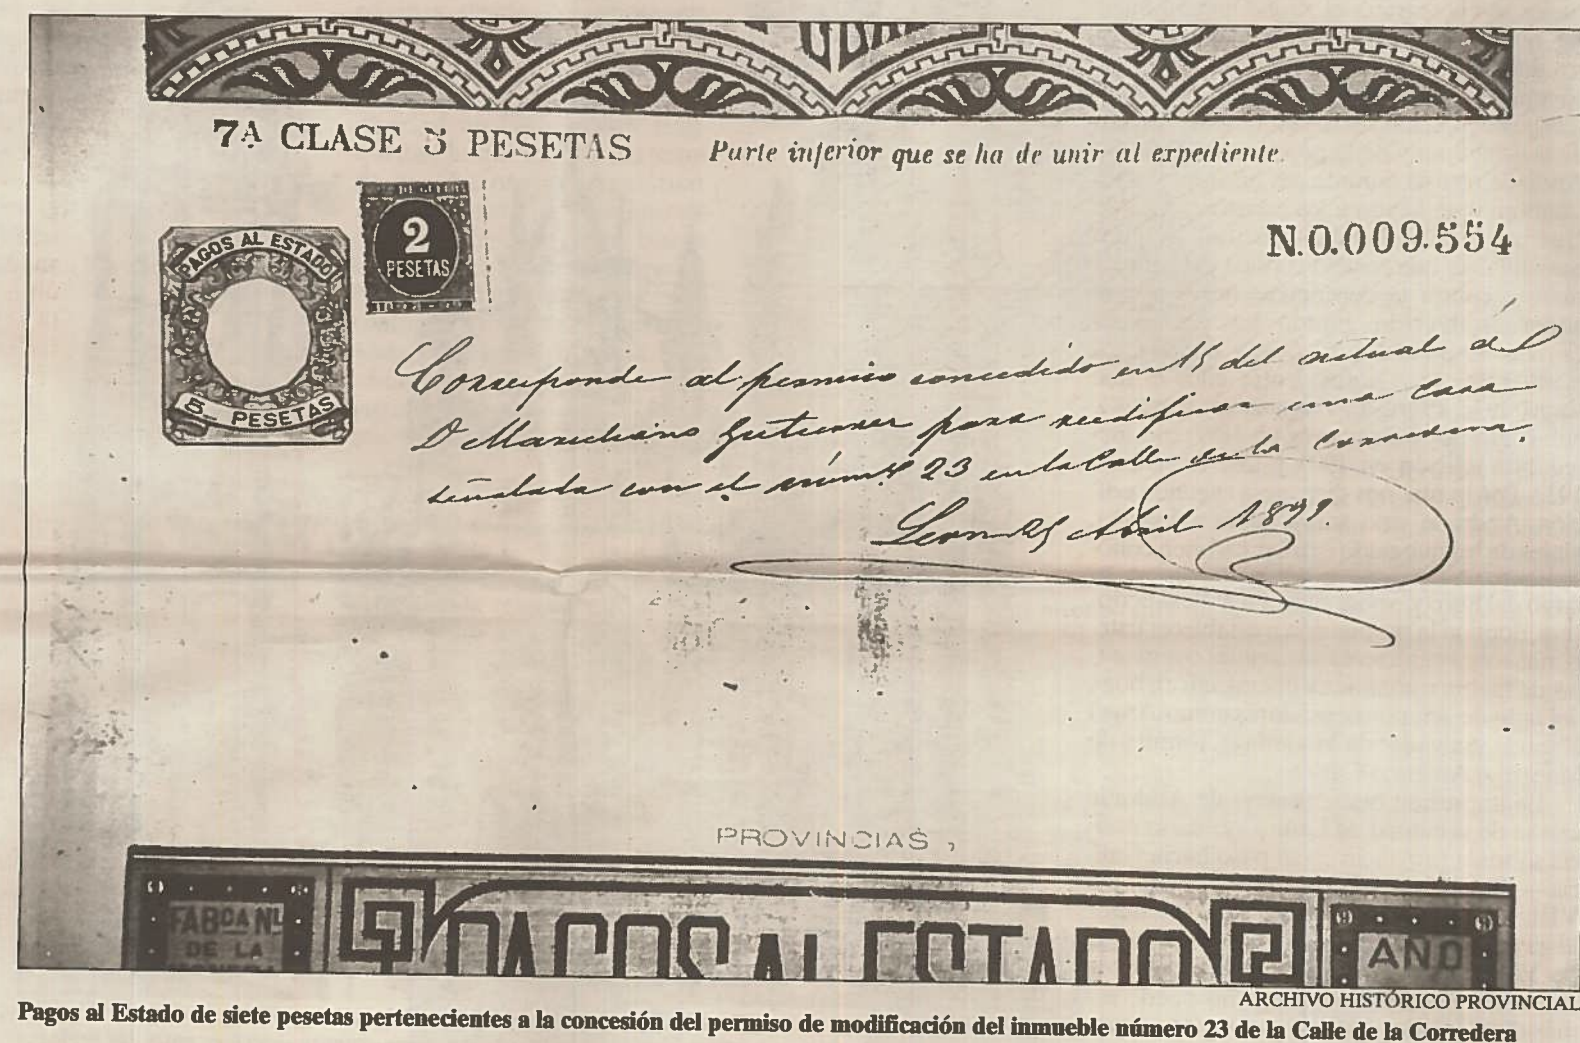 7ª CLASE 5 PESETAS
Parte inferior que se ha de unir al expediente.
2
PESETAS
PAGOS AL ESTADO
5 PESETAS
N.0.009.554
Corresponde al permiso concedido en 15 del actual á
D Marceliano Gutierrez para reedificar una casa
señalada con el núm.º 23 en la Calle de la Corredera.
Leon 25 Abril 1899.
PROVINCIAS
FABCA NL
DE LA
PAGOS AL ESTADO
AÑO
ARCHIVO HISTÓRICO PROVINCIAL
Pagos al Estado de siete pesetas pertenecientes a la concesión del permiso de modificación del inmueble número 23 de la Calle de la Corredera